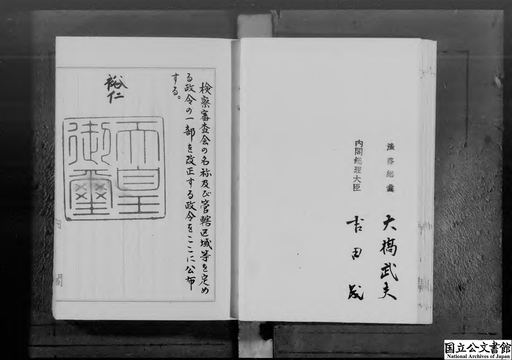 検察審査会の名称及び管轄区域等を定め
る政令の一部を改正する政令をここに公布
する。
裕仁
天皇
御璽
法務総裁
大橋武夫
内閣総理大臣
吉田茂
国立公文書館
National Archives of Japan